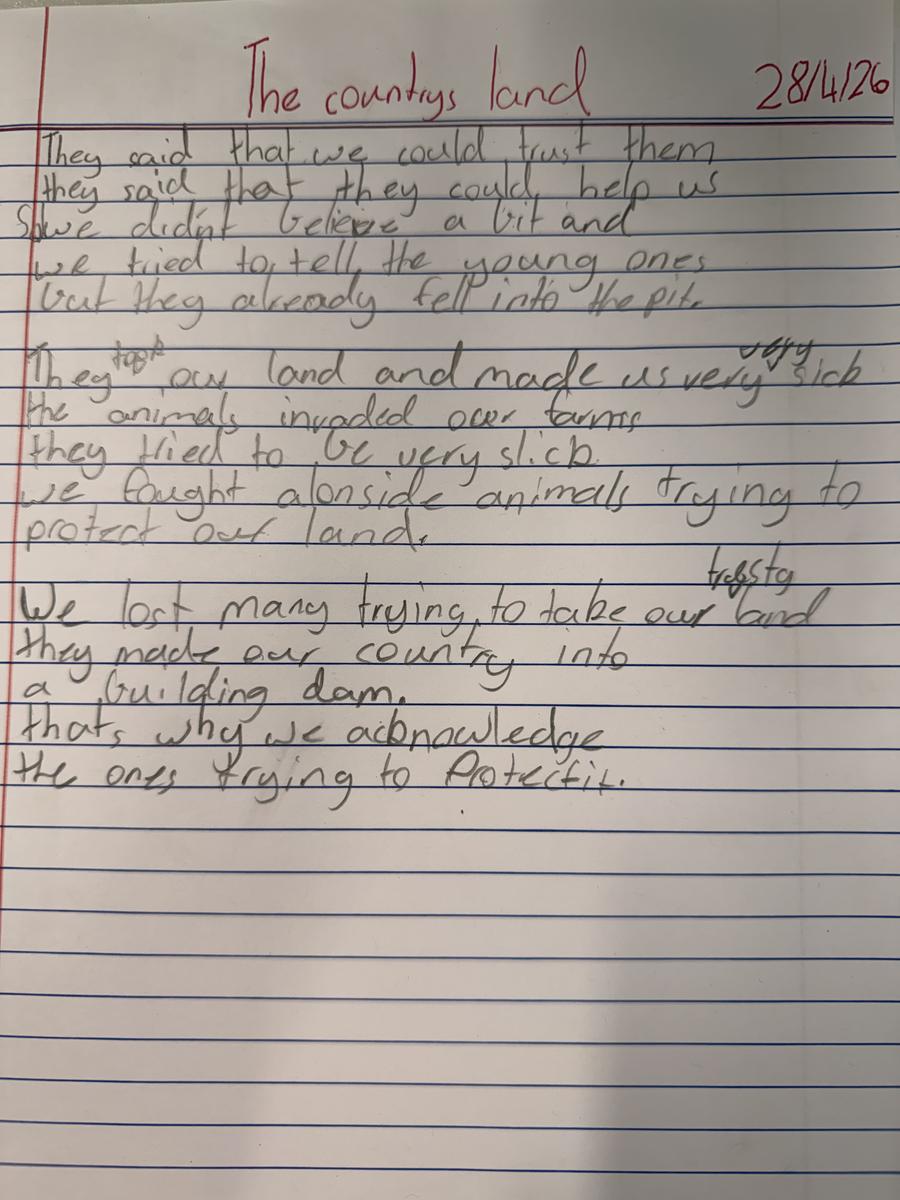 The countrys land 28/4/26
They said that we could trust them
they said that they could help us
So we didn't believe a bit and
we tried to tell the young ones
but they already fell into the pit.
They took our land and made us very very sick
the animals invaded over farms
they tried to be very slick
we fought alonside animals trying to
protect our land.
We lost many trying to take our land
they made our country into
a building dam.
thats why we acknowledge
the ones trying to Protect it.